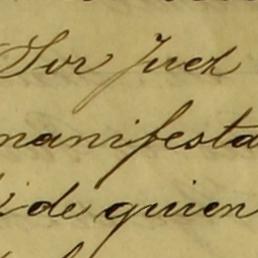 Sor Juez
manifesta
de quien